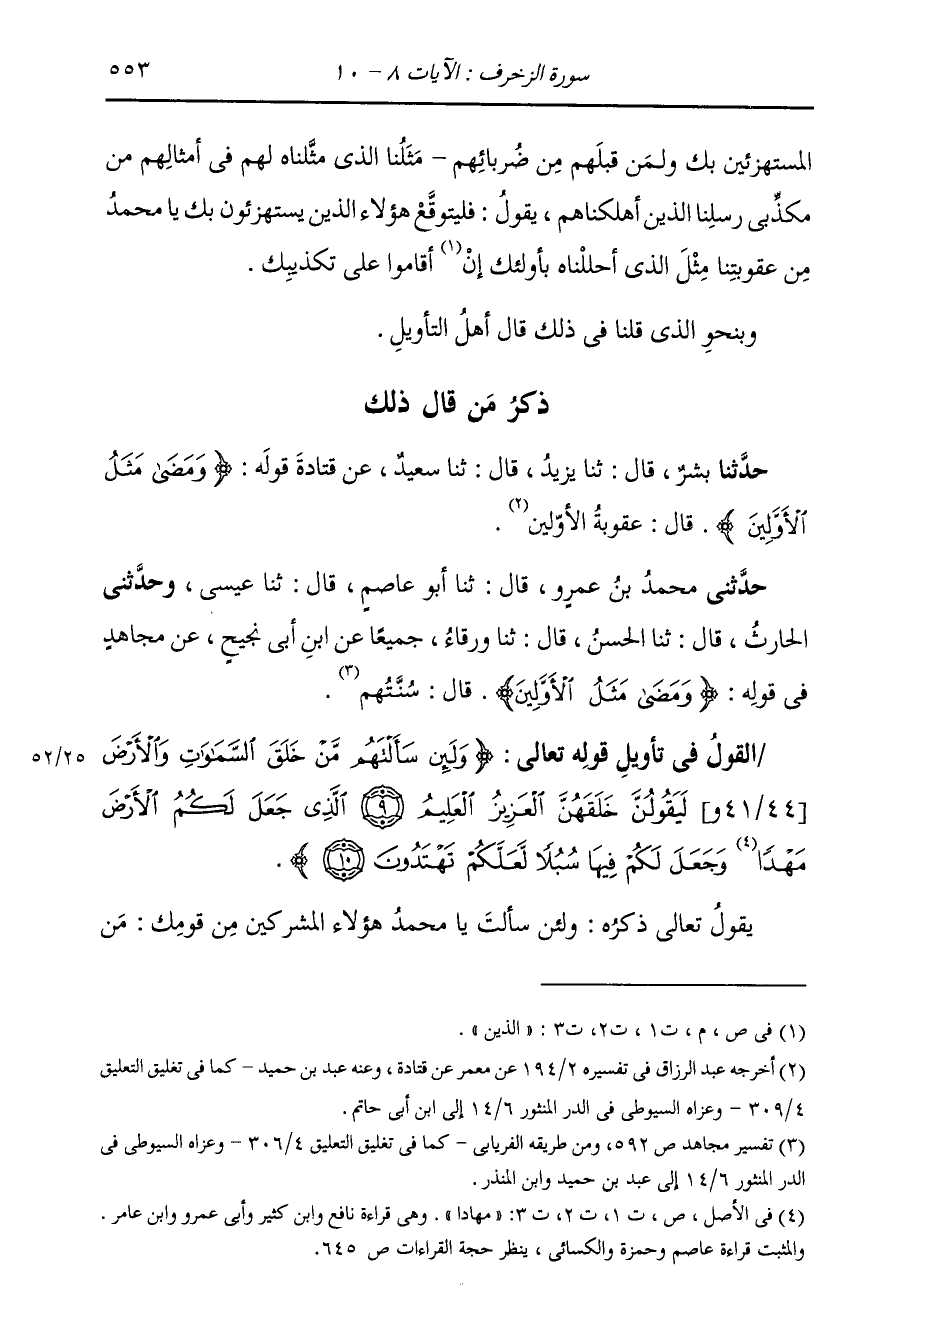 سورة الزخرف : الآيات ٨ - ١٠ ٥٥٣
المستهزئين بك ولـمَن قبلَهم مِن ضُربائِهم - مَثَلُنا الذى مثَّلناه لهم فى أمثالِهم من
مكذِّبى رسلِنا الذين أهلكناهم ، يقولُ : فليتوقَّعْ هؤلاء الذين يستهزئون بك يا محمدُ
مِن عقوبتِنا مِثْلَ الذى أحلَلْناه بأولئك إنْ(١) أقاموا على تكذيبِك .
وبنحوِ الذى قلنا فى ذلك قال أهلُ التأويلِ .
ذكرُ مَن قال ذلك
حدَّثنا بشرٌ ، قال : ثنا يزيدُ ، قال : ثنا سعيدٌ ، عن قتادةَ قولَه : ﴿ وَمَضَىٰ مَثَلُ
ٱلْأَوَّلِينَ ﴾ . قال : عقوبةُ الأوّلين(٢) .
حدَّثنى محمدُ بنُ عمرٍو ، قال : ثنا أبو عاصمٍ ، قال : ثنا عيسى ، وحدَّثنى
الحارثُ ، قال : ثنا الحسنُ ، قال : ثنا ورقاءُ ، جميعًا عن ابنِ أبى نجيحٍ ، عن مجاهدٍ
فى قولِه : ﴿ وَمَضَىٰ مَثَلُ ٱلْأَوَّلِينَ﴾ . قال : سُنَّتُهم(٣) .
/القولُ فى تأويلِ قولِه تعالى : ﴿ وَلَئِن سَأَلْتَهُم مَّنْ خَلَقَ ٱلسَّمَـٰوَٰتِ وَٱلْأَرْضَ ٥٢/٢٥
[٤١/٤٤و] لَيَقُولُنَّ خَلَقَهُنَّ ٱلْعَزِيزُ ٱلْعَلِيمُ ۝٩ ٱلَّذِى جَعَلَ لَكُمُ ٱلْأَرْضَ
مَهْدًا(٤) وَجَعَلَ لَكُمْ فِيهَا سُبُلًا لَّعَلَّكُمْ تَهْتَدُونَ ۝١٠ ﴾ .
يقولُ تعالى ذكرُه : ولئن سألتَ يا محمدُ هؤلاء المشركين مِن قومِك : مَن
(١) فى ص ، م ، ت١ ، ت٢، ت٣ : « الذين » .
(٢) أخرجه عبد الرزاق فى تفسيره ١٩٤/٢ عن معمر عن قتادة ، وعنه عبد بن حميد - كما فى تغليق التعليق
٣٠٩/٤ - وعزاه السيوطى فى الدر المنثور ١٤/٦ إلى ابن أبى حاتم .
(٣) تفسير مجاهد ص ٥٩٢، ومن طريقه الفريابى - كما فى تغليق التعليق ٣٠٦/٤ - وعزاه السيوطى فى
الدر المنثور ١٤/٦ إلى عبد بن حميد وابن المنذر .
(٤) فى الأصل ، ص ، ت ١، ت ٢، ت ٣: « مهادا » . وهى قراءة نافع وابن كثير وأبى عمرو وابن عامر .
والمثبت قراءة عاصم وحمزة والكسائى ، ينظر حجة القراءات ص ٦٤٥.